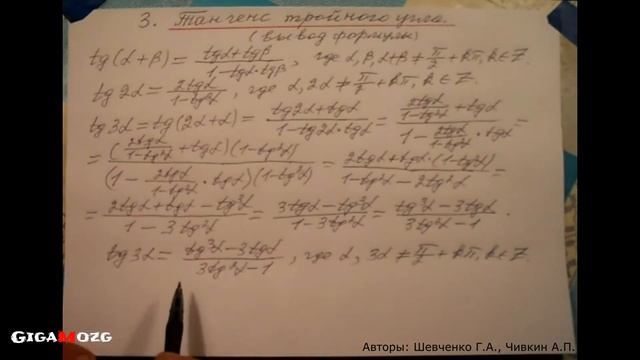 3. Тангенс тройного угла.
(вывод формулы)
tg(α+β) = (tgα+tgβ)/(1-tgα·tgβ), где α, β, α+β ≠ π/2 + kπ, k∈Z.
tg2α = 2tgα/(1-tg²α), где α, 2α ≠ π/2 + kπ, k∈Z.
tg3α = tg(2α+α) = (tg2α+tgα)/(1-tg2α·tgα) = (2tgα/(1-tg²α) + tgα)/(1 - 2tgα/(1-tg²α)·tgα) =
= ((2tgα/(1-tg²α) + tgα)(1-tg²α))/((1 - 2tgα/(1-tg²α)·tgα)(1-tg²α)) = (2tgα+tgα·(1-tg²α))/(1-tg²α-2tg²α) =
= (2tgα+tgα-tg³α)/(1-3tg²α) = (3tgα-tg³α)/(1-3tg²α) = (tg³α-3tgα)/(3tg²α-1).
tg3α = (tg³α-3tgα)/(3tg²α-1), где α, 3α ≠ π/2 + kπ, k∈Z.
GIGAMOZG
Авторы: Шевченко Г.А., Чивкин А.П.